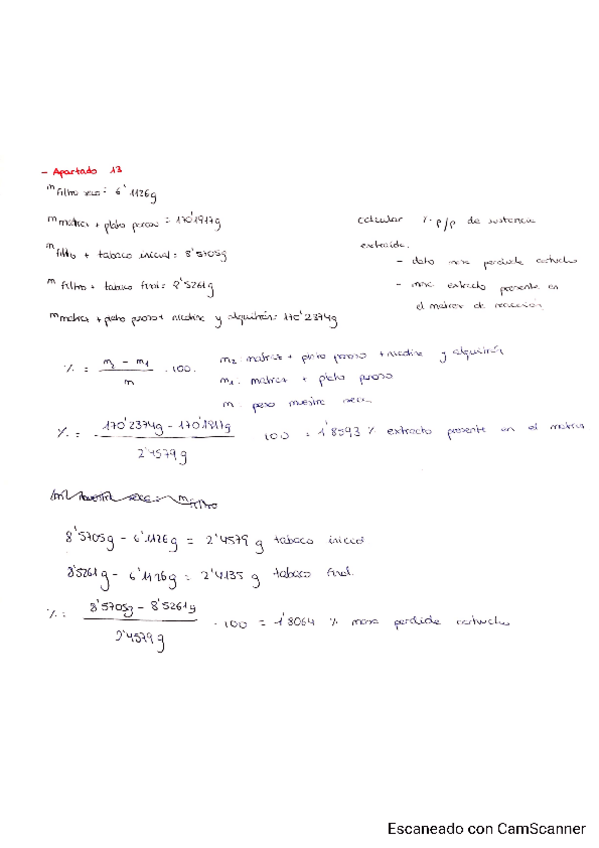 - Apartado 13
m filtro seco = 6'1126g
m matraz + plato poroso = 170'1917g
m filtro + tabaco inicial = 8'5705g
m filtro + tabaco final = 8'5261g
m matraz + plato poroso + nicotina y alquitrán = 170'2374g
calcular % p/p de sustancia
extraída.
- dato masa perdida cartucho
- masa extracto presente en
el matraz de reacción
% = m2 - m1 / m · 100.
m2: matraz + plato poroso + nicotina y alquitrán
m1: matraz + plato poroso
m: peso muestra seca
% = 170'2374g - 170'1917g / 2'4579g 100 = 1'8593 % extracto presente en el matraz
8'5705g - 6'1126g = 2'4579 g tabaco inicial
8'5261g - 6'1126g = 2'4135 g tabaco final.
% = 8'5705g - 8'5261g / 2'4579g · 100 = 1'8064 % masa perdida cartucho
Escaneado con CamScanner